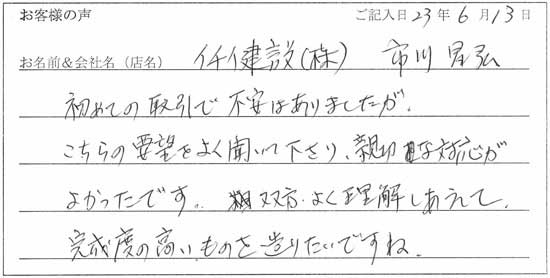 お客様の声 ご記入日 23年 6月 13日
お名前&会社名(店名) イチイ建設(株) 市川 昌弘
初めての取引で不安はありましたが、
こちらの要望をよく聞いて下さり、親切な対応が
よかったです。 双方、よく理解しあえて、
完成度の高いものを造りたいですね。